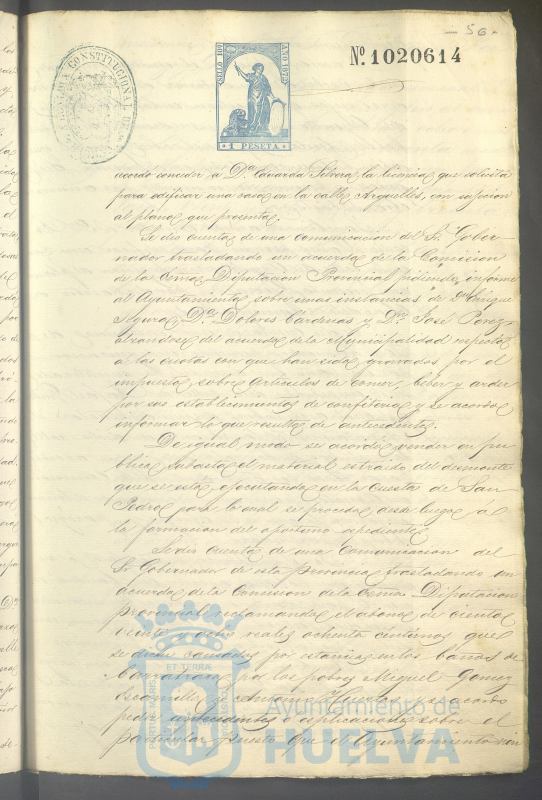 56.
Nº 1020614
SELLO 10º AÑO 1877
1 PESETA
CONSTITUCIONAL
acordó conceder á Dª Eduarda la licencia que solicita
para edificar una casa en la calle Arguelles, con sugecion
al plano que presenta.
Se dió cuenta de una comunicacion del Sr Gober-
nador trasladando un acuerdo de la Comision
de la Excma Diputacion Provincial pidiendo informe
al Ayuntamiento sobre unas instancias de Dn Enrique
Dª Dolores Cárdenas y Dn José Perez
alzandose del acuerdo de la Municipalidad respecto
á las cuotas con que han sido gravados por el
impuesto sobre articulos de comer, beber y arder
por sus establecimientos de confiteria y se acordó
informar lo que resulte de antecedentes.
De igual modo se acordó vender en pu-
blica subasta el material extraido del desmonte
que se está ejecutando en la Cuesta de San
Pedro para lo cual se proceda desde luego á
la formacion del oportuno espediente
Se dió cuenta de una comunicacion del
Sr Gobernador de esta provincia trasladando un
acuerdo de la Comision de la Excma Diputacion
provincial reclamando el abono de ciento
veinte reales ochenta centimos que
se dicen causados por estancias en los baños de
por los pobres Miguel Gomez
y Antonio y se acordó
pedir antecedentes ó esplicaciones sobre el
particular, puesto que el Ayuntamiento sin
PORTUS MARIS ET TERRAE CUSTODIA
Ayuntamiento de
HUELVA